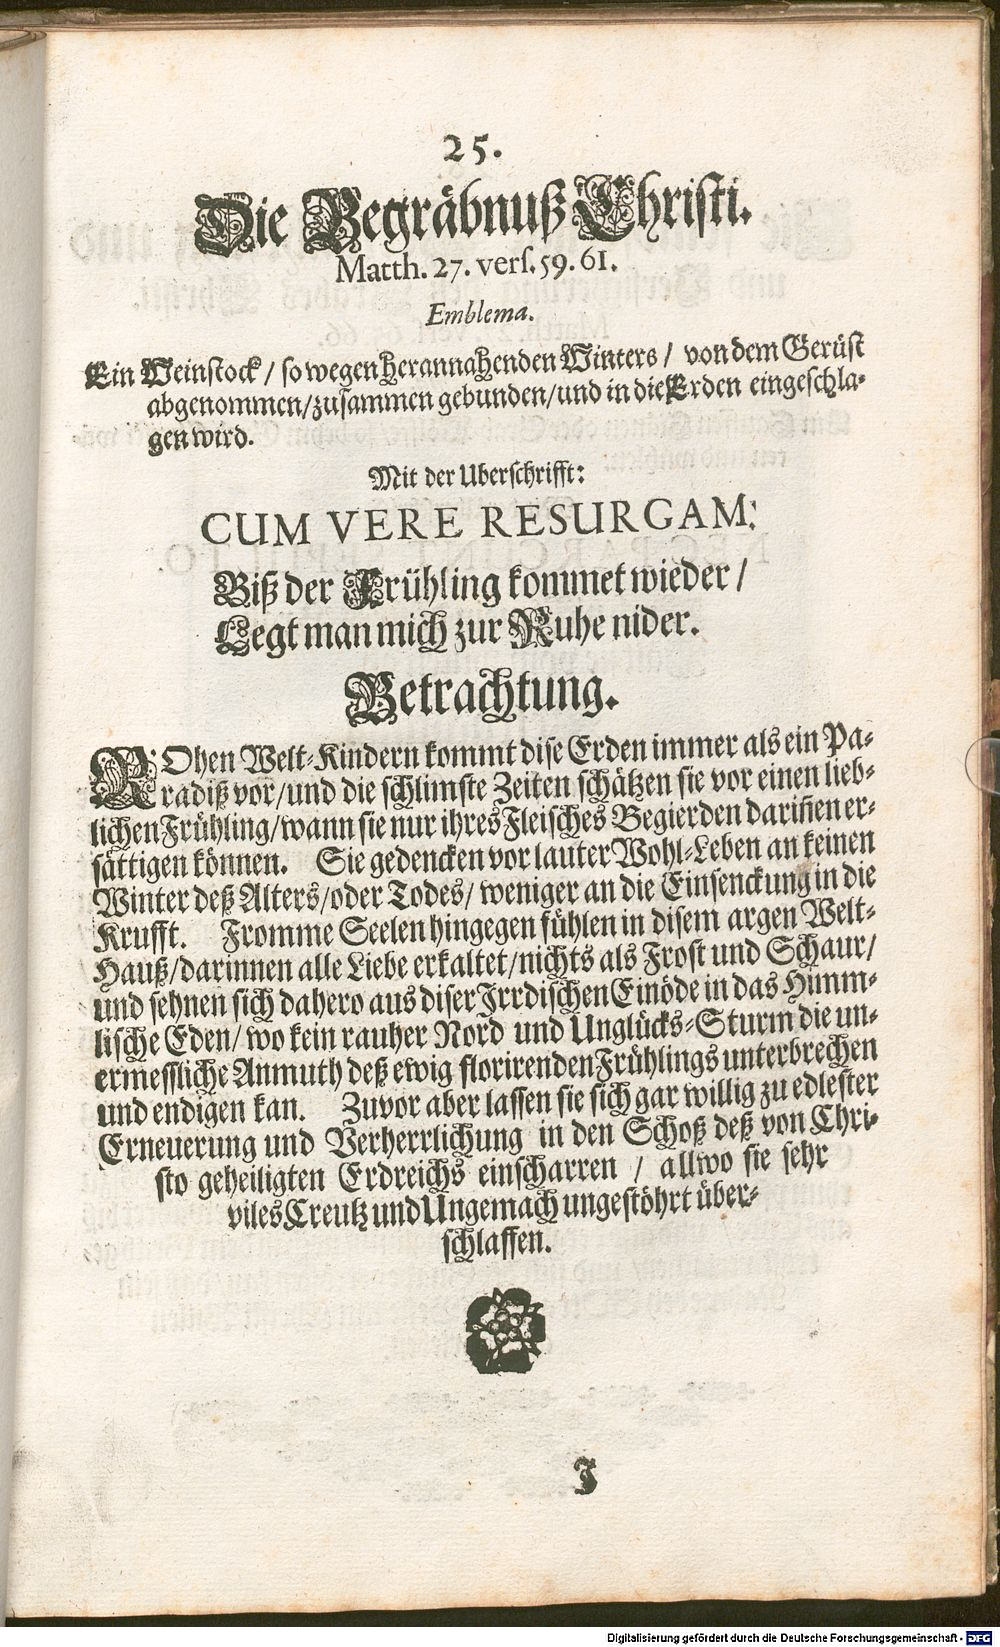 25.
Die Begräbnuß Christi.
Matth. 27. vers. 59. 61.
Emblema.
Ein Weinstock / so wegen herannahenden Winters / von dem Gerüst
abgenommen/zusammen gebunden/und in die Erden eingeschla-
gen wird.
Mit der Uberschrifft:
CUM VERE RESURGAM:
Biß der Frühling kommet wieder /
Legt man mich zur Ruhe nider.
Betrachtung.
ROhen Welt-Kindern kommt dise Erden immer als ein Pa-
radiß vor/und die schlimste Zeiten schätzen sie vor einen lieb-
lichen Frühling/wann sie nur ihres Fleisches Begierden dariñen er-
sättigen können. Sie gedencken vor lauter Wohl-Leben an keinen
Winter deß Alters/oder Todes/ weniger an die Einsenckung in die
Krufft. Fromme Seelen hingegen fühlen in disem argen Welt-
Hauß/darinnen alle Liebe erkaltet/nichts als Frost und Schaur/
und sehnen sich dahero aus diser Irrdischen Einöde in das Himm-
lische Eden/ wo kein rauher Nord und Unglücks-Sturm die un-
ermessliche Anmuth deß ewig florirenden Frühlings unterbrechen
und endigen kan. Zuvor aber lassen sie sich gar willig zu edlester
Erneuerung und Verherrlichung in den Schoß deß von Chri-
sto geheiligten Erdreichs einscharren / allwo sie sehr
viles Creutz und Ungemach ungestöhrt über-
schlaffen.
J
Digitalisierung gefördert durch die Deutsche Forschungsgemeinschaft - DFG